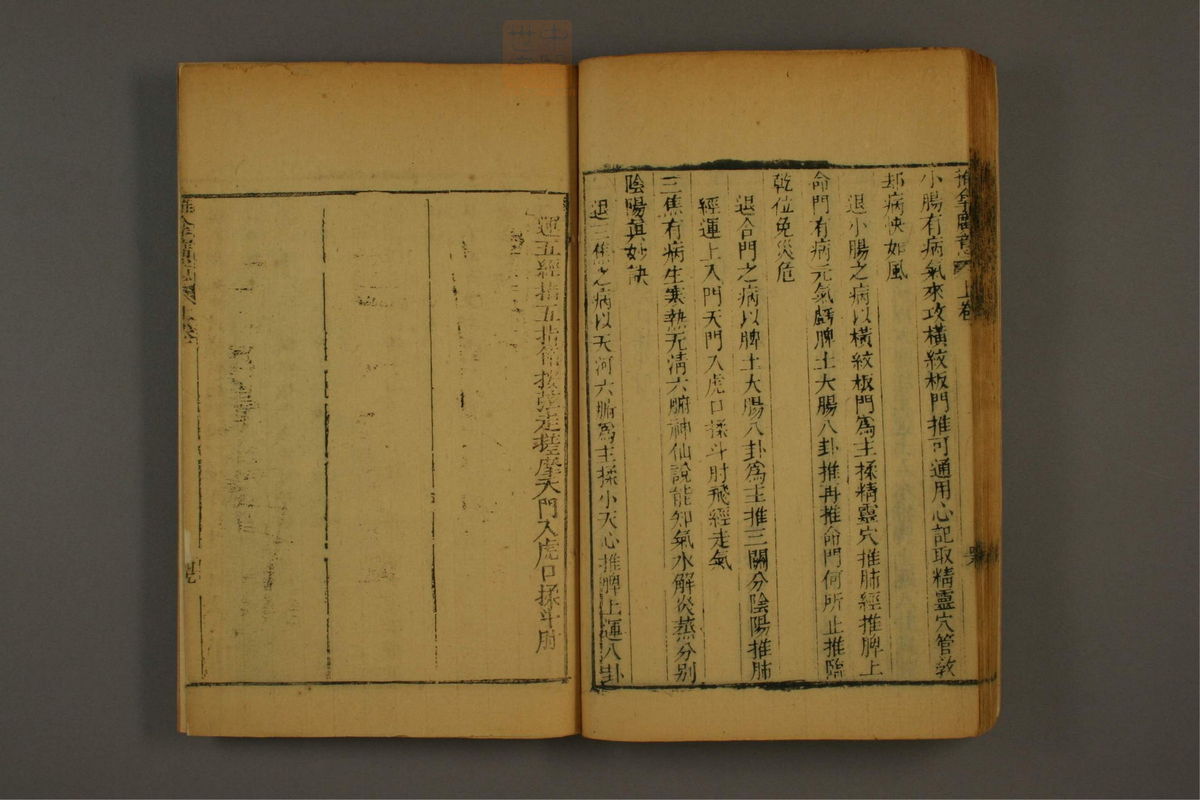 推拿 上卷
小腸有病氣來攻橫紋板門推可通用心記取精靈穴管教
却病快如風
退小腸之病以橫紋板門爲主揉精靈穴推肺經推脾土
命門有病元氣虧脾土大腸八卦推再推命門何所止推臨
乾位免災危
退合門之病以脾土大腸八卦爲主推三關分陰陽推肺
經運上入門天門入虎口揉斗肘飛經走氣
三焦有病生寒熱无淸六腑神仙說能知氣水解炎蒸分别
陰陽眞妙訣
退三焦之病以天河六腑爲主揉小天心推脾土運八卦
運五經掐五指節按弦走搓摩天門入虎口揉斗肘